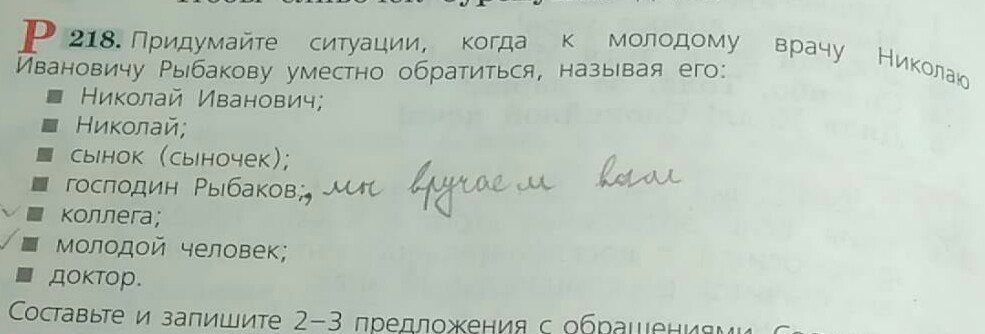 Р 218. Придумайте ситуации, когда к молодому врачу Николаю
Ивановичу Рыбакову уместно обратиться, называя его:
■ Николай Иванович;
■ Николай;
■ сынок (сыночек);
■ господин Рыбаков;, мы вручаем вам
■ коллега;
■ молодой человек;
■ доктор.
Составьте и запишите 2–3 предложения с обращениями.